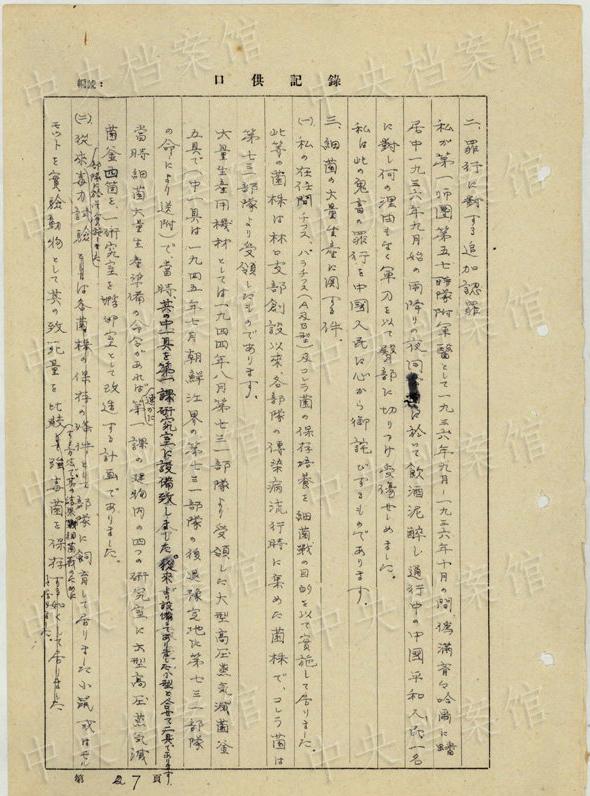 口供記錄
二、罪行に對する追加認罪
私が第一師團第五七聯隊附軍醫として一九三六年 月—一九三六年十月の間、偽滿齊々哈爾に駐
屯中一九三六年九月始の雨降りの夜間 に於いて飲酒泥酔し通行中の中國平和人民一名
に對し何の理由も無く軍刀を以て臀部に切りつけ受傷せしめました。
私は此の鬼畜の罪行を中國人民に心から御詫びするものであります。
三、細菌の大量生産に関する件、
(一)私の在任間チフス、パラチフス(A及B型)及コレラ菌の保存培養を細菌戰の目的を以て實施して居りました。
此等の菌株は林口支部創設以来、各部隊の傳染病流行時に集めた菌株で、コレラ菌は
第七三一部隊より受領したものであります。
大量生産用機材としては一九四四年八月第七三一部隊より受領した大型高圧蒸気滅菌釜
五具で(中一具は一九四五年七月朝鮮江界の第七三一部隊の後退豫定地に第七三一部隊
の命により送附)で、當時其の中一具を第一課研究室に設備致しました。
當時細菌大量生産準備の命令があれば第一課の建物内の四つの研究室に大型高圧蒸気滅
菌釜四箇を、一研究室を孵卵室として改造する計画でありました。
(二)従来毒力試験 は各菌株の保存の条件として部隊に飼育して居りました小鼠或はモル
モットを實驗動物として其の致死量を比較 強毒菌を保存する如くして居りました
第 7 頁
中央档案馆